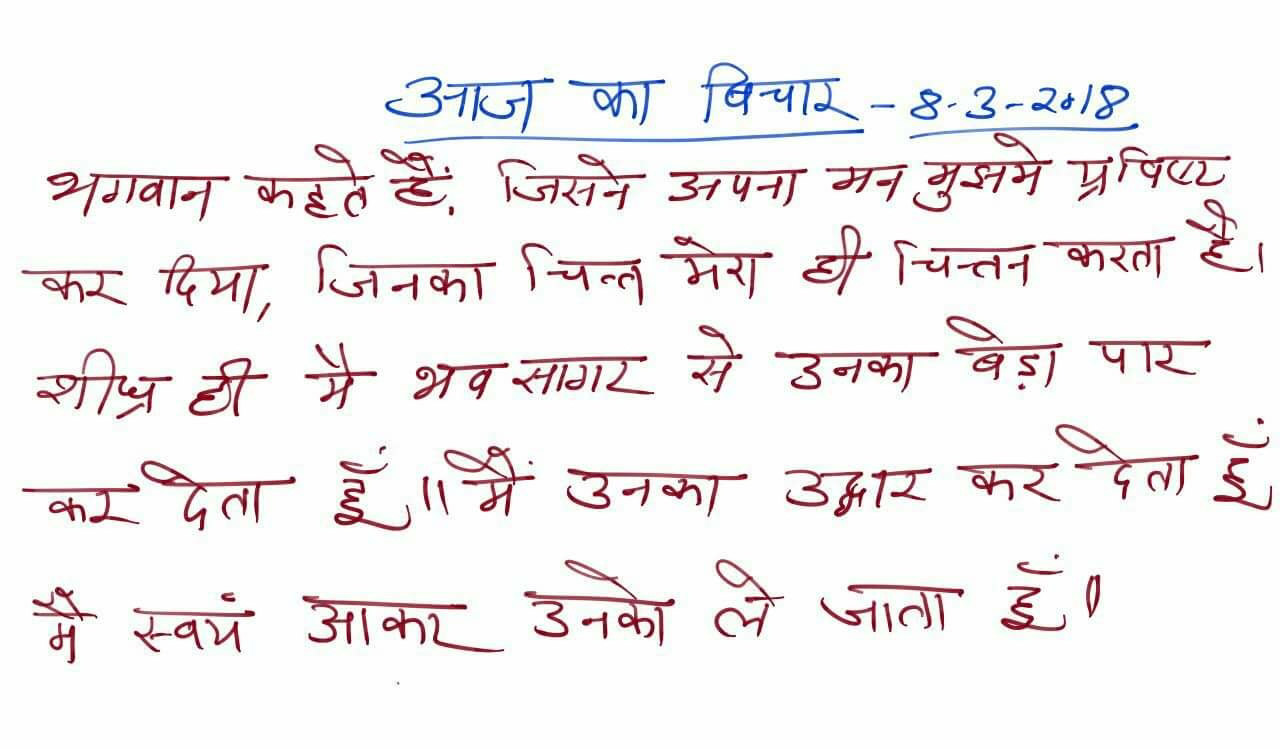 आज का बिचार - 8-3-2018
भगवान कहते हैं. जिसने अपना मन मुझमे प्रविष्ट
कर दिया, जिनका चित्त मेरा ही चिन्तन करता है।
शीघ्र ही मै भव सागर से उनका बेड़ा पार
कर देता हूँ॥ मैं उनका उद्धार कर देता हूँ
मै स्वयं आकर उनको ले जाता हूँ।